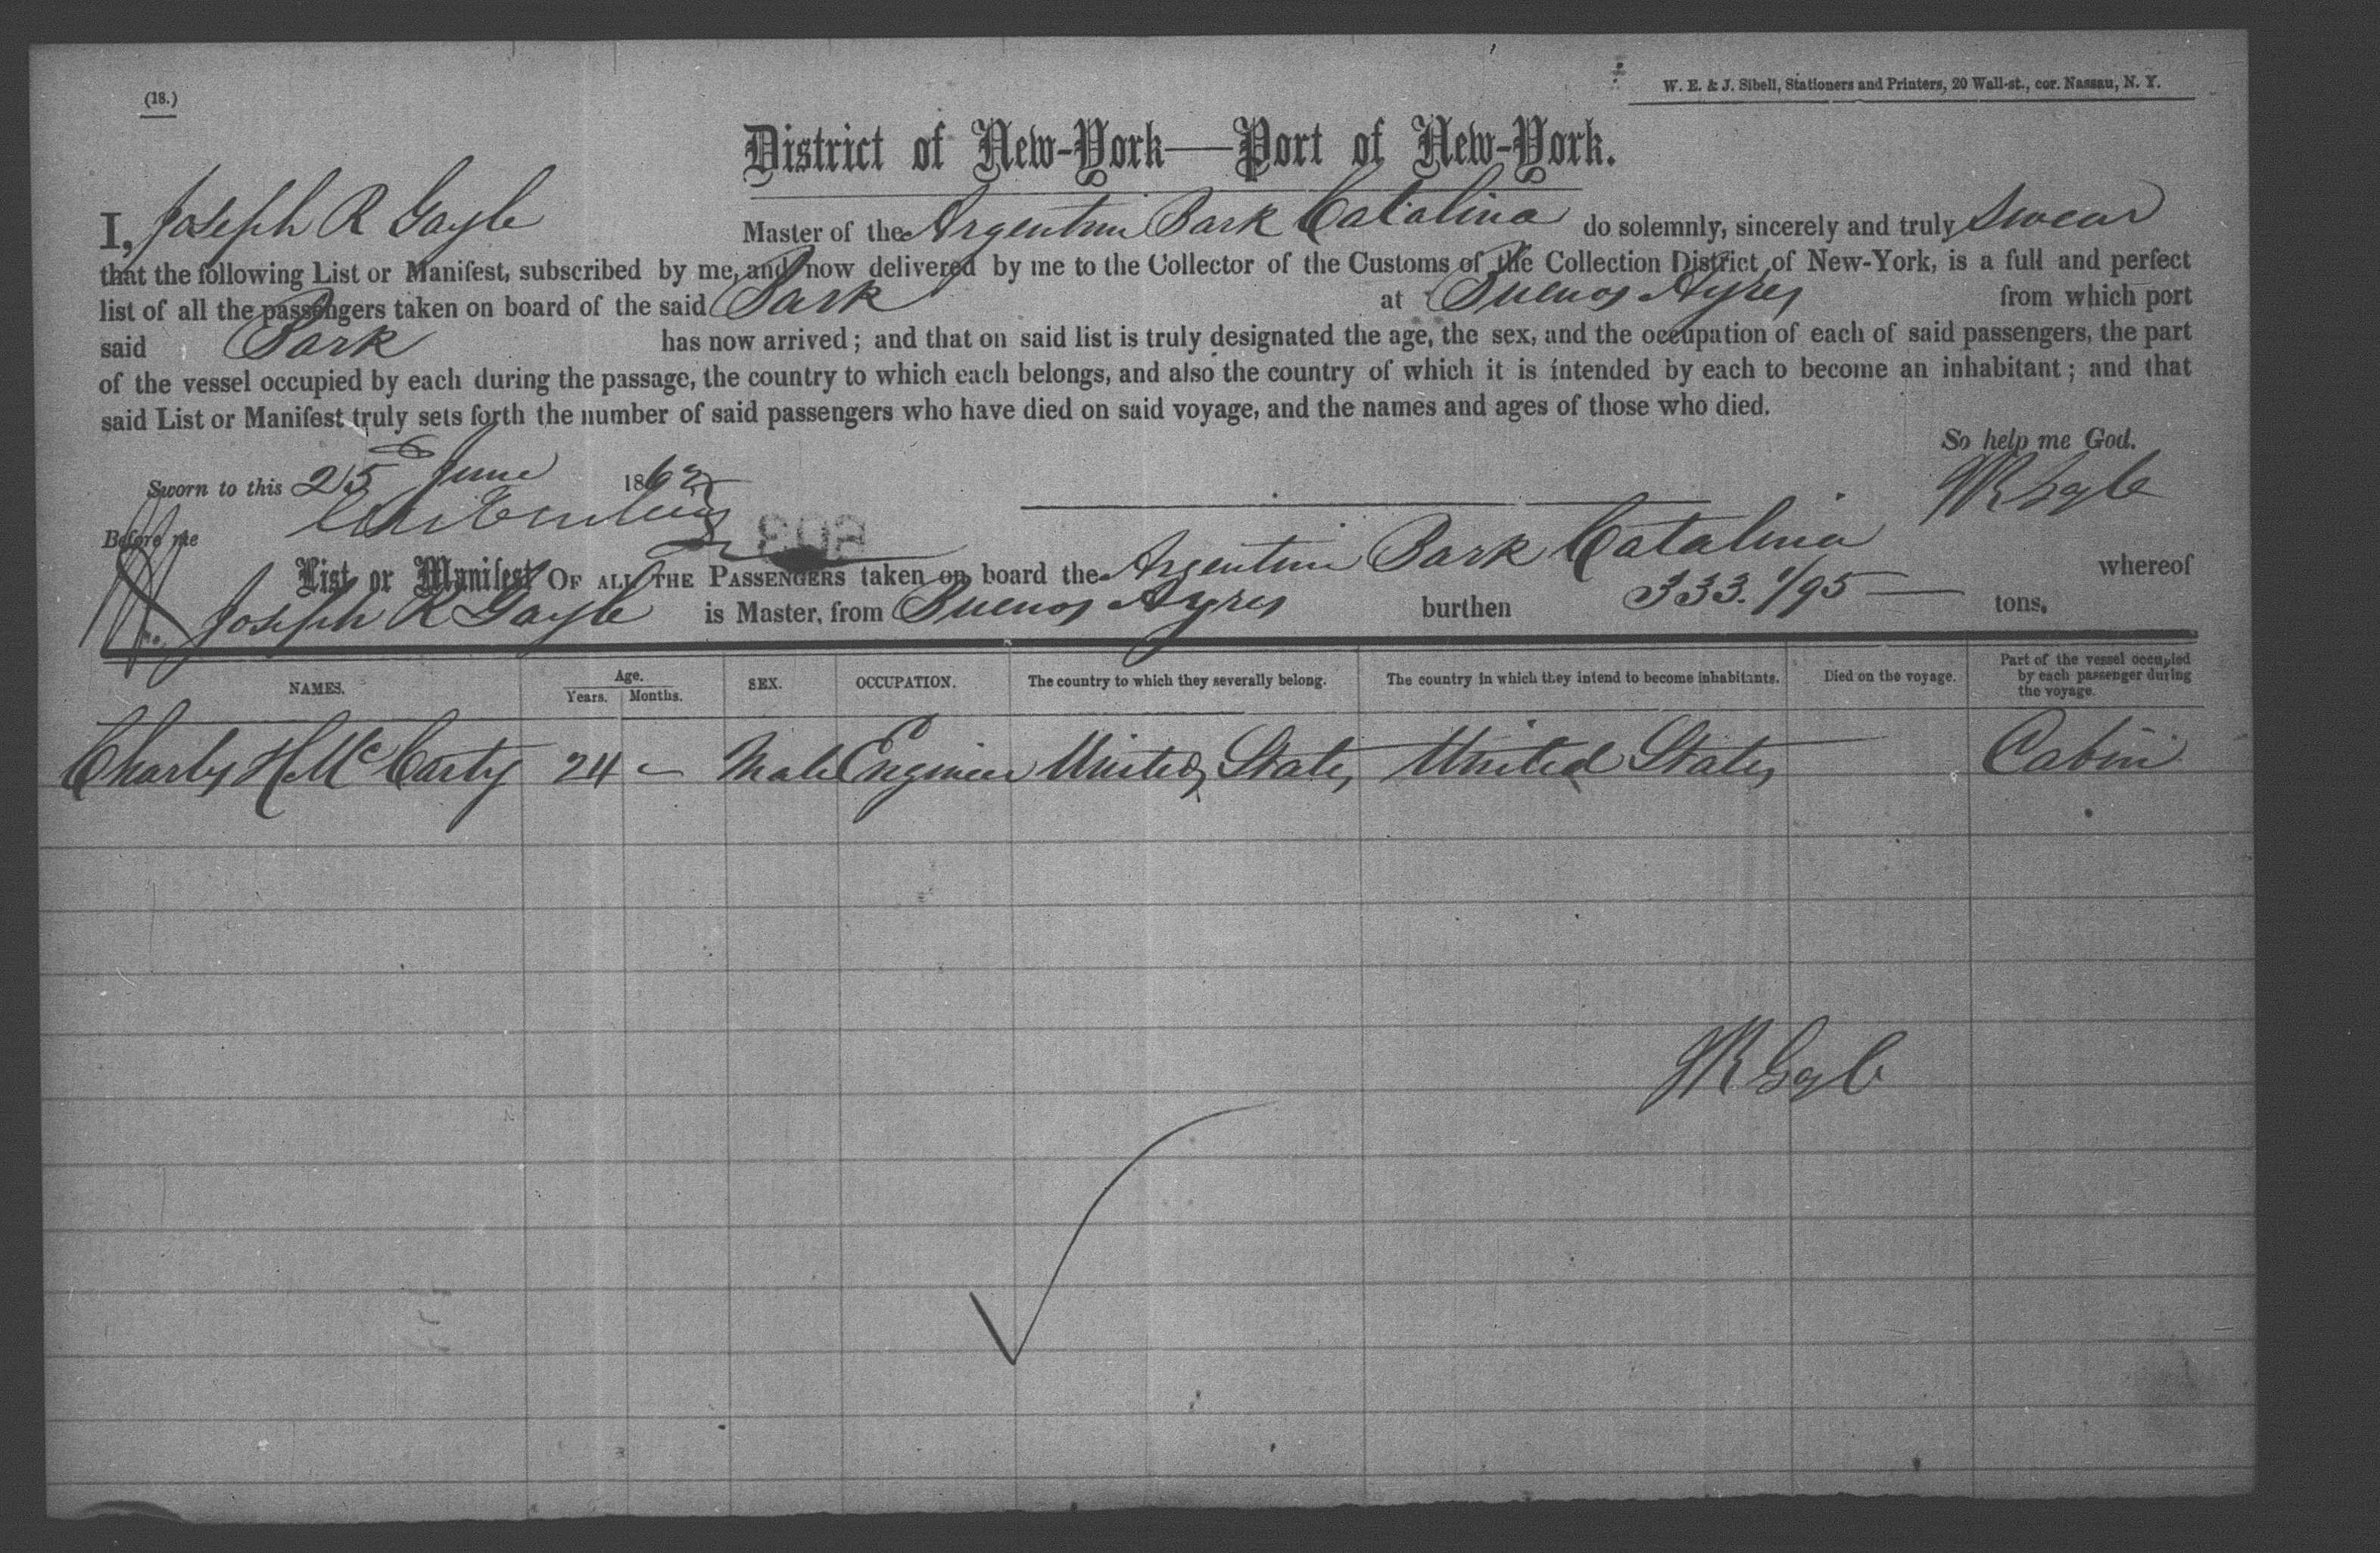 (18.)
W. E. & J. Sibell, Stationers and Printers, 20 Wall-st., cor. Nassau, N. Y.
District of New-York—Port of New-York.
I, Joseph R Gayle Master of the Argentine Bark Catalina do solemnly, sincerely and truly Swear
that the following List or Manifest, subscribed by me, and now delivered by me to the Collector of the Customs of the Collection District of New-York, is a full and perfect
list of all the passengers taken on board of the said Bark at Buenos Ayres from which port
said Bark has now arrived; and that on said list is truly designated the age, the sex, and the occupation of each of said passengers, the part
of the vessel occupied by each during the passage, the country to which each belongs, and also the country of which it is intended by each to become an inhabitant; and that
said List or Manifest truly sets forth the number of said passengers who have died on said voyage, and the names and ages of those who died.
So help me God.
Sworn to this 25 June 1862
JR Gayle
Before me
List or Manifest OF ALL THE PASSENGERS taken on board the Argentine Bark Catalina whereof
Joseph R Gayle is Master, from Buenos Ayres burthen 333. 1/95 tons.
NAMES. Age. Years. Months. SEX. OCCUPATION. The country to which they severally belong. The country in which they intend to become inhabitants. Died on the voyage. Part of the vessel occupied by each passenger during the voyage.
Charly H Mc Carty 24 – Male Engineer United States United States Cabin
JR Gayle